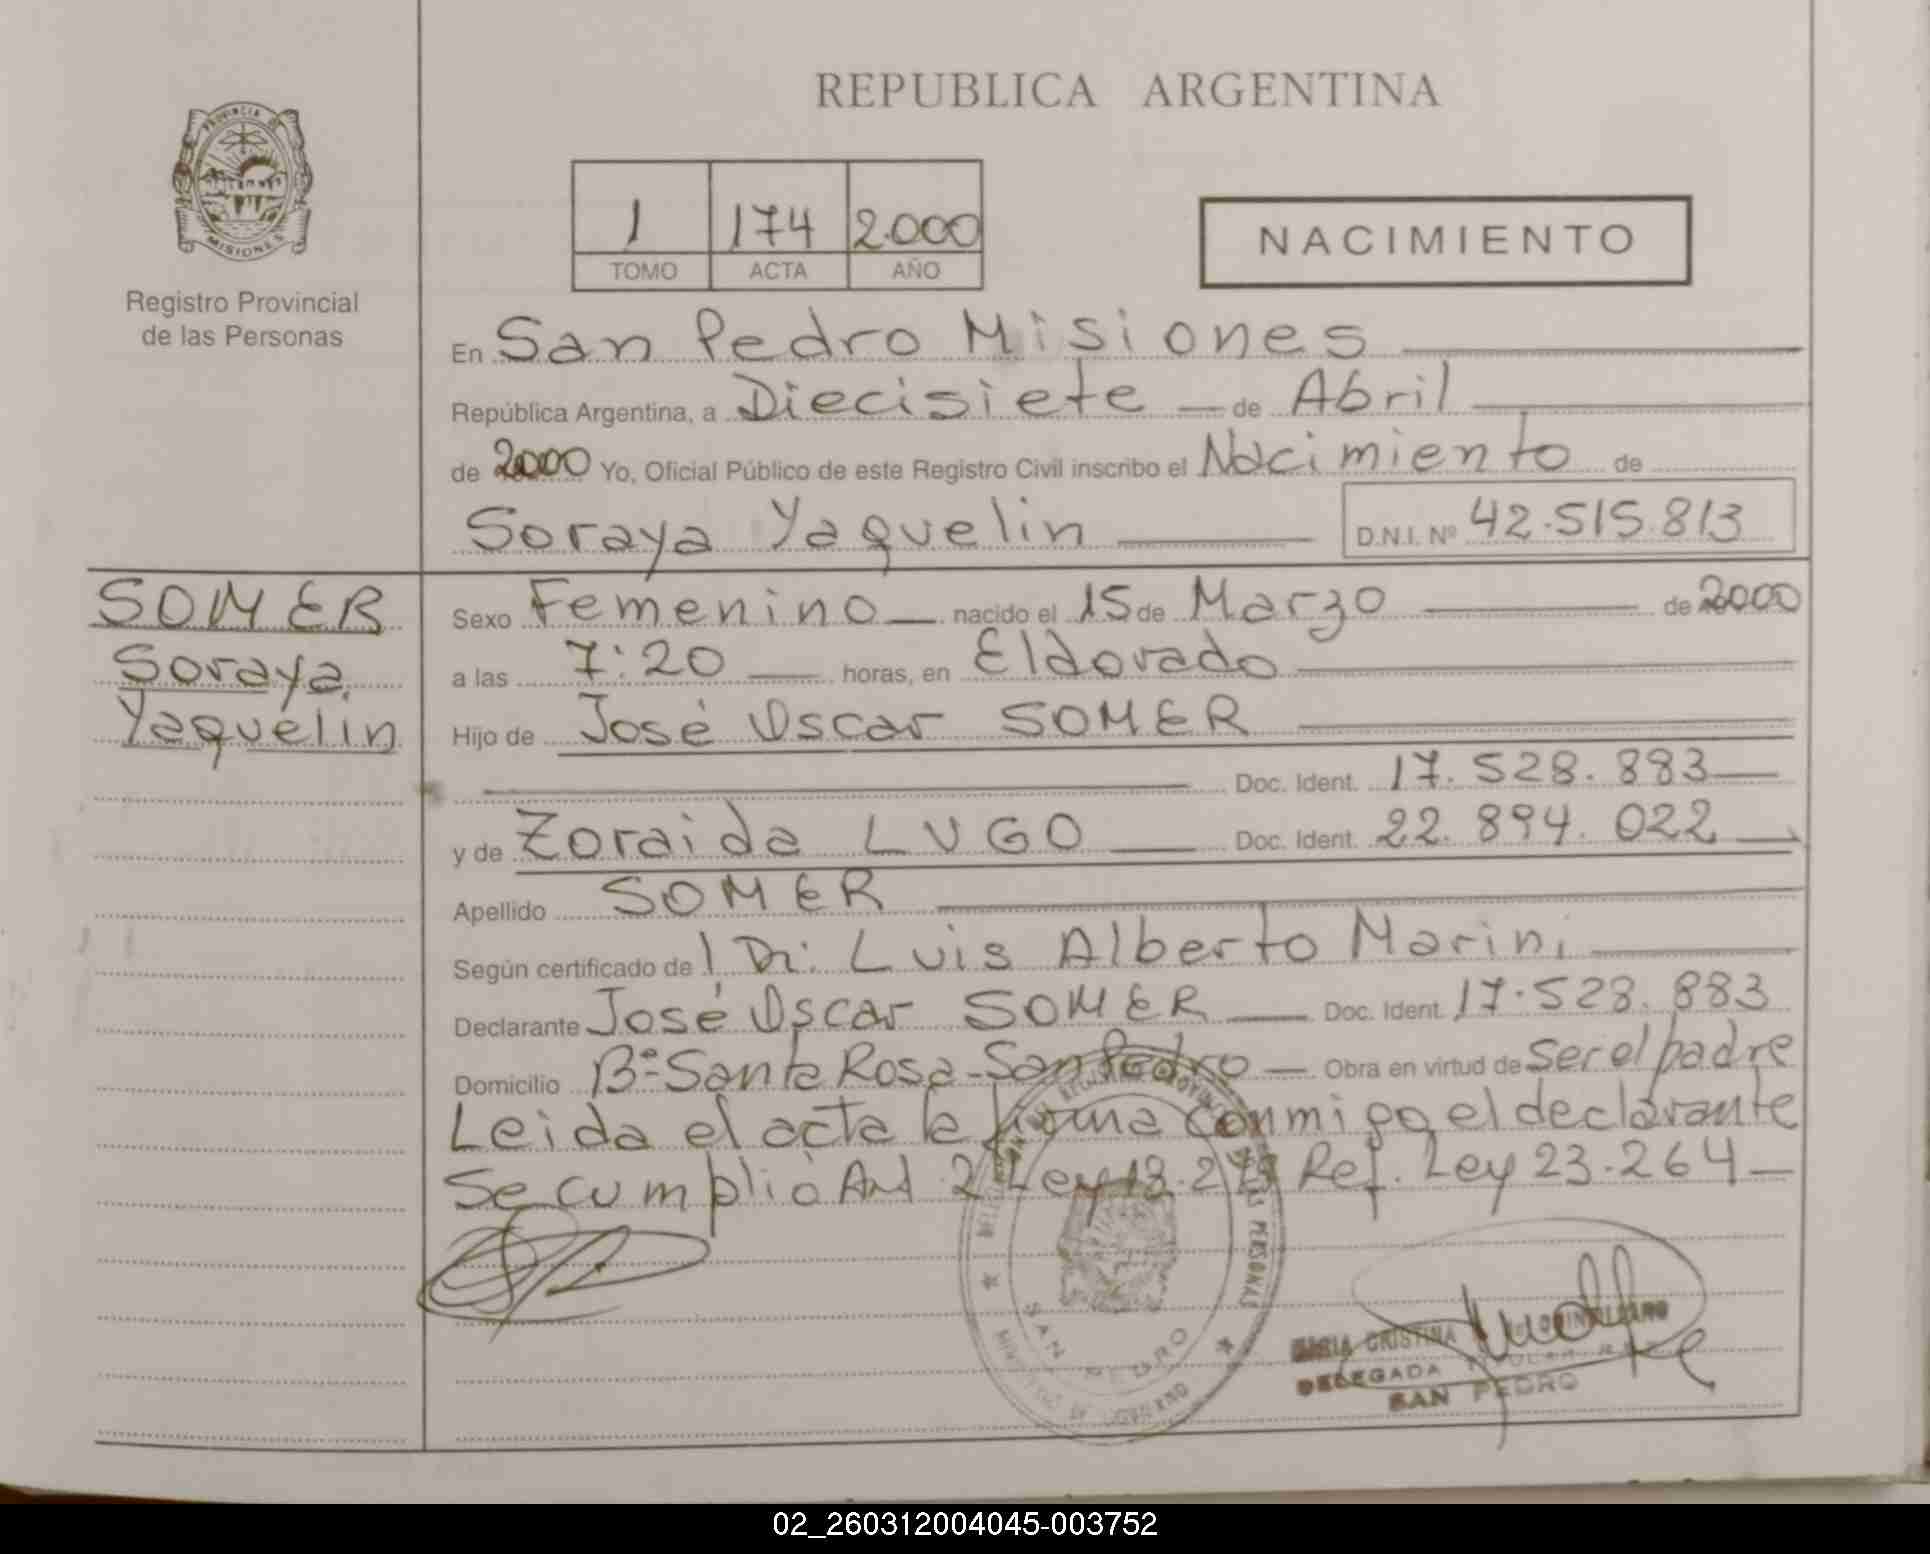 REPUBLICA ARGENTINA
PROVINCIA DE
MISIONES
Registro Provincial
de las Personas
1 174 2.000
TOMO ACTA AÑO
NACIMIENTO
En San Pedro Misiones
República Argentina, a Diecisiete de Abril
de 2000 Yo, Oficial Público de este Registro Civil inscribo el Nacimiento de
Soraya Yaquelin D.N.I. Nº 42.515.813
SOMER
Soraya
Yaquelin
Sexo Femenino nacido el 15 de Marzo de 2000
a las 7:20 horas, en Eldorado
Hijo de José Oscar SOMER
Doc. Ident. 17.528.883
y de Zoraida LUGO Doc. Ident. 22.894.022
Apellido SOMER
Según certificado de l Dr. Luis Alberto Marini
Declarante José Oscar SOMER Doc. Ident. 17.528.883
Domicilio Bº Santa Rosa - San Pedro Obra en virtud de ser el padre
Leida el acta la firma conmigo el declarante
Se cumplió Art 2 Ley Ref. Ley 23.264
PERSONAS
SAN PEDRO
MARIA CRISTINA
DELEGADA TITULAR
SAN PEDRO
02_260312004045-003752